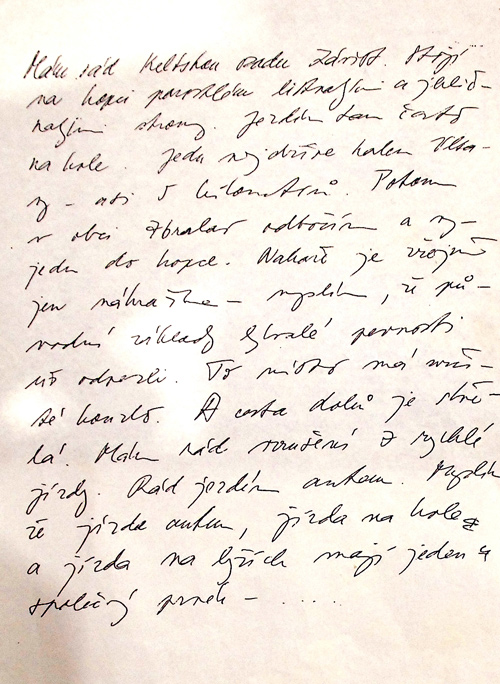 Mám rád Keltskou osadu Závist. Stojí
na kopci porostlém listnatými a jehlič-
natými stromy. Jezdím tam často
na kole. Jedu nejdříve kolem Vlta-
vy - asi 5 kilometrů. Potom
v obci Zbraslav odbočím a vy-
jedu do kopce. Nahoře je zřejmě
jen náhražka - myslím, že pů-
vodní základy bývalé pevnosti
už odvezli. To místo má
kouzlo. A cesta dolů je
lá. Mám rád vzrušení z rychlé
jízdy. Rád jezdím autem. Myslím
že jízda autem, jízda na kole
a jízda na lyžích mají jeden
společný prvek - .....